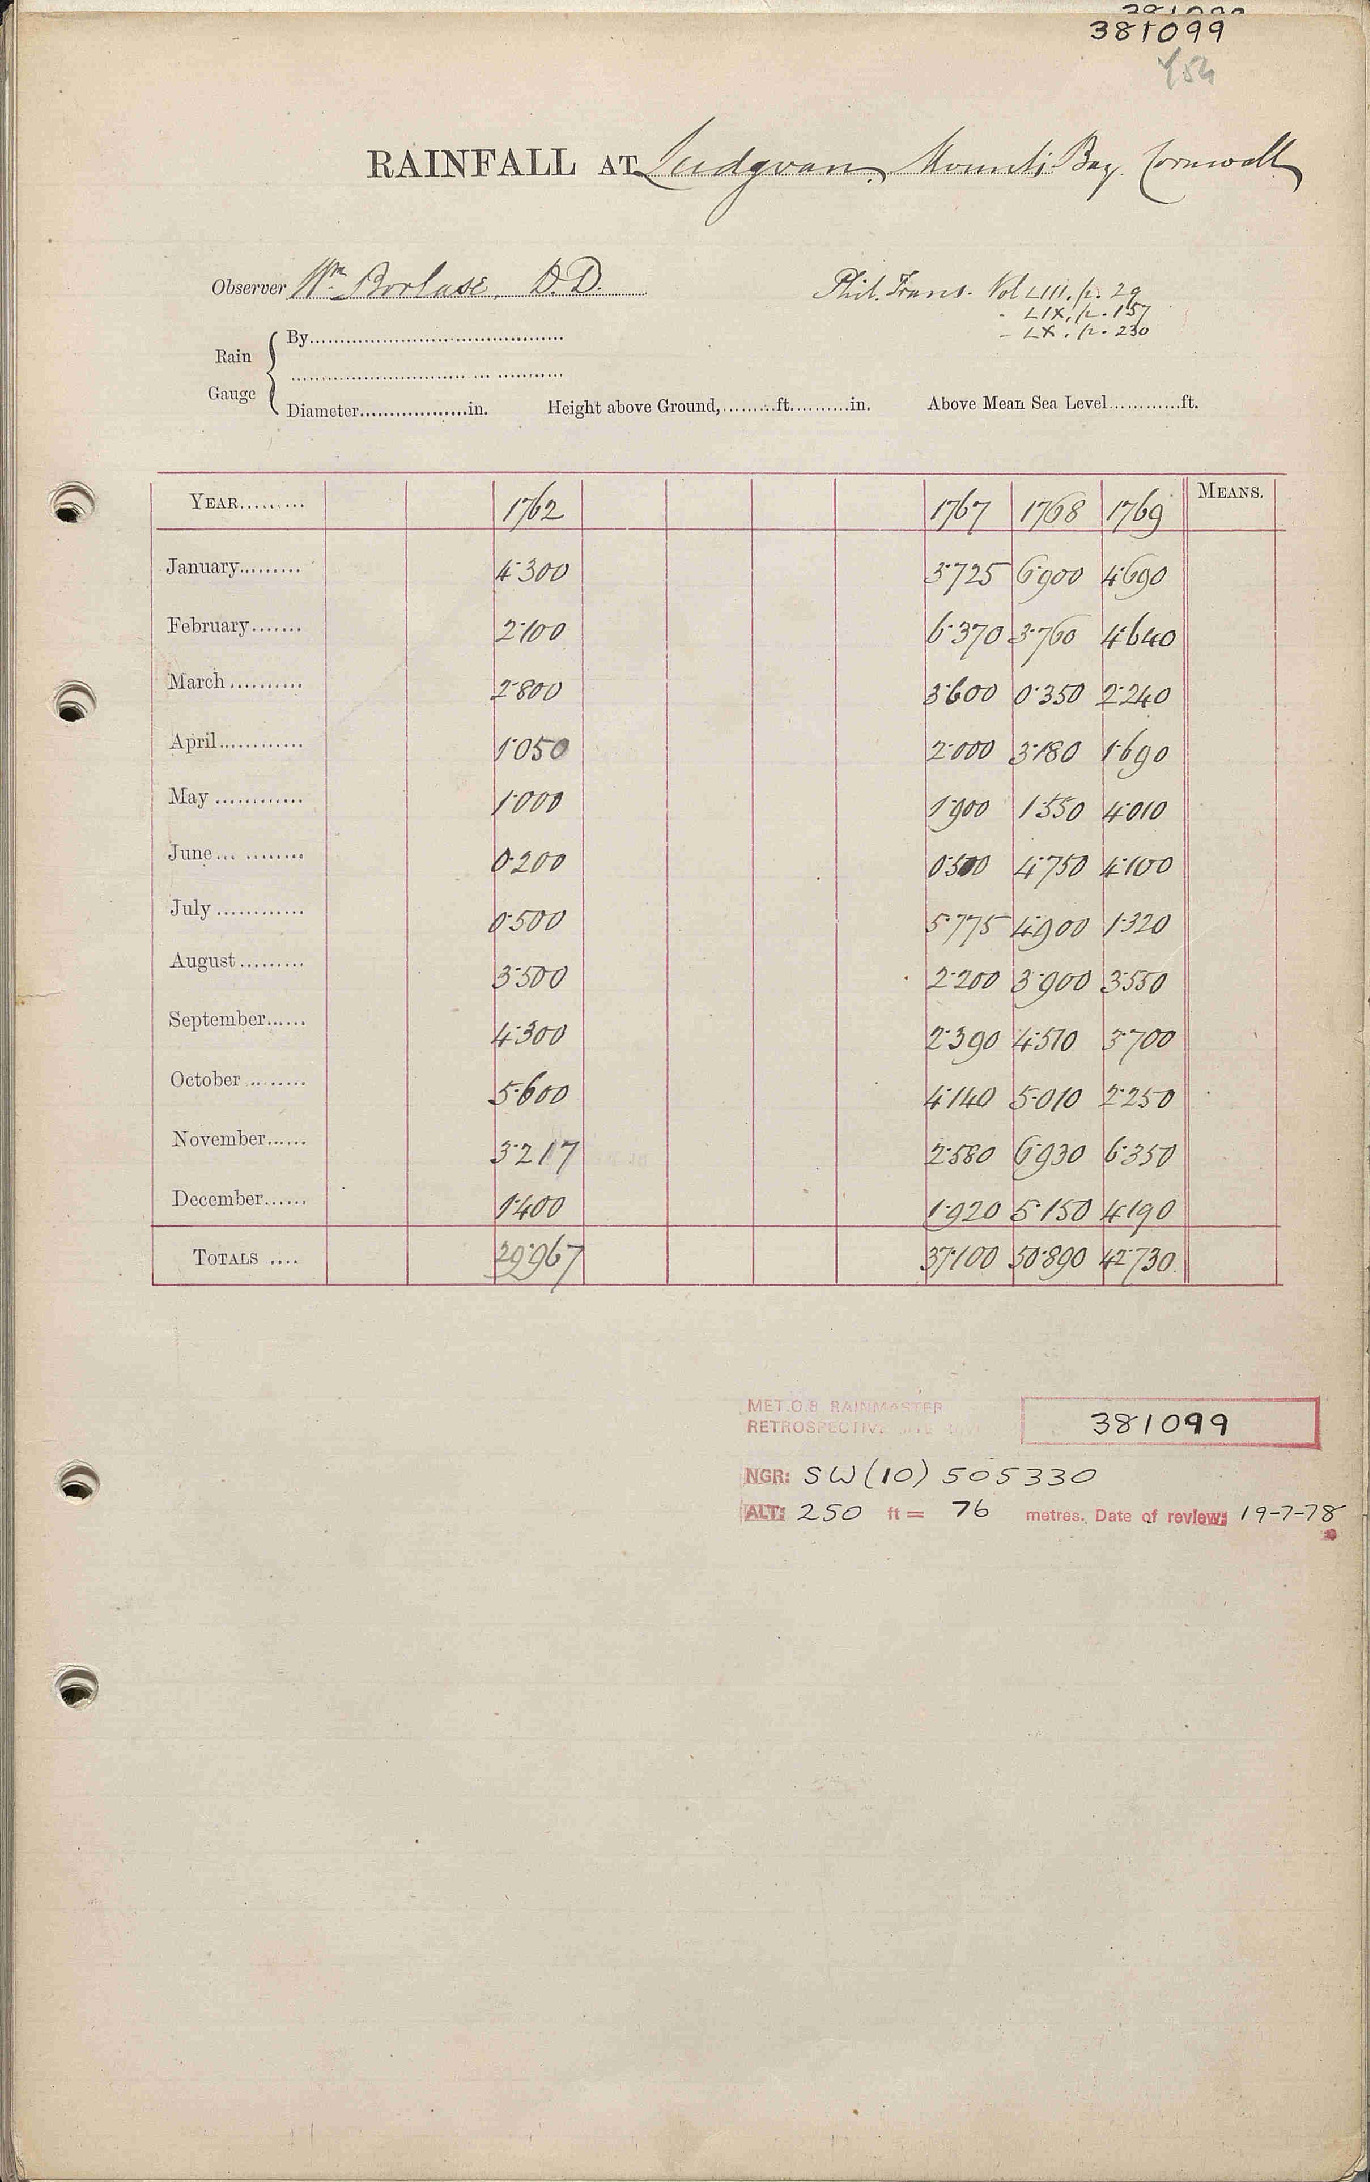 381099
RAINFALL AT Ludgvan, Mount's Bay. Cornwall
Observer Wm. Borlase, D.D.
Phil. Trans. Vol LIII, p. 29
- LIX, p. 157
- LX. p. 230
Rain Gauge
By
Diameter..................in. Height above Ground,.........ft..........in. Above Mean Sea Level............ft.
YEAR......... 1762 1767 1768 1769 MEANS.
January......... 4·300 3·725 6·900 4·690
February....... 2·100 6·370 3·760 4·640
March.......... 2·800 3·600 0·350 2·240
April............ 1·050 2·000 3·180 1·690
May ............ 1·000 1·900 1·550 4·010
June... ......... 0·200 0·500 4·750 4·100
July ............ 0·500 5·775 4·900 1·320
August......... 3·500 2·200 3·900 3·550
September...... 4·300 2·390 4·510 3·700
October ......... 5·600 4·140 5·010 2·250
November...... 3·217 2·580 6·930 6·350
December...... 1·400 1·920 5·150 4·190
TOTALS .... 29·967 37·100 50·890 42·730
MET.O.8 RAINMASTER
RETROSPECTIVE 381099
NGR: SW(10) 505330
ALT: 250 ft = 76 metres. Date of review: 19-7-78